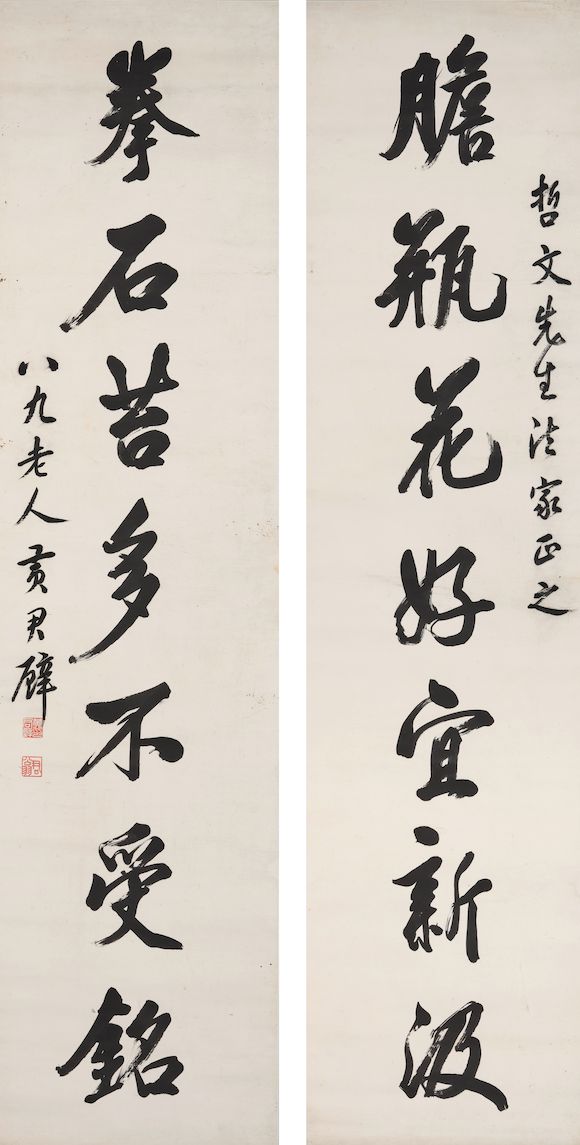 哲文先生法家正之
膽瓶花好宜新汲
拳石苔多不受銘
八九老人黄君璧